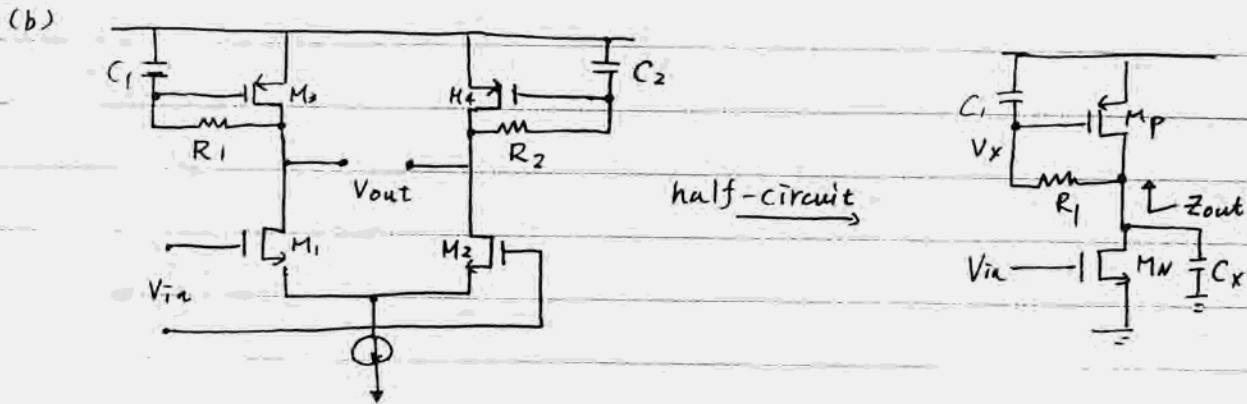 (b)
C1
M3
M4
C2
R1
R2
Vout
Vin
M1
M2
half-circuit
C1
Vx
MP
R1
Zout
Vin
MN
Cx